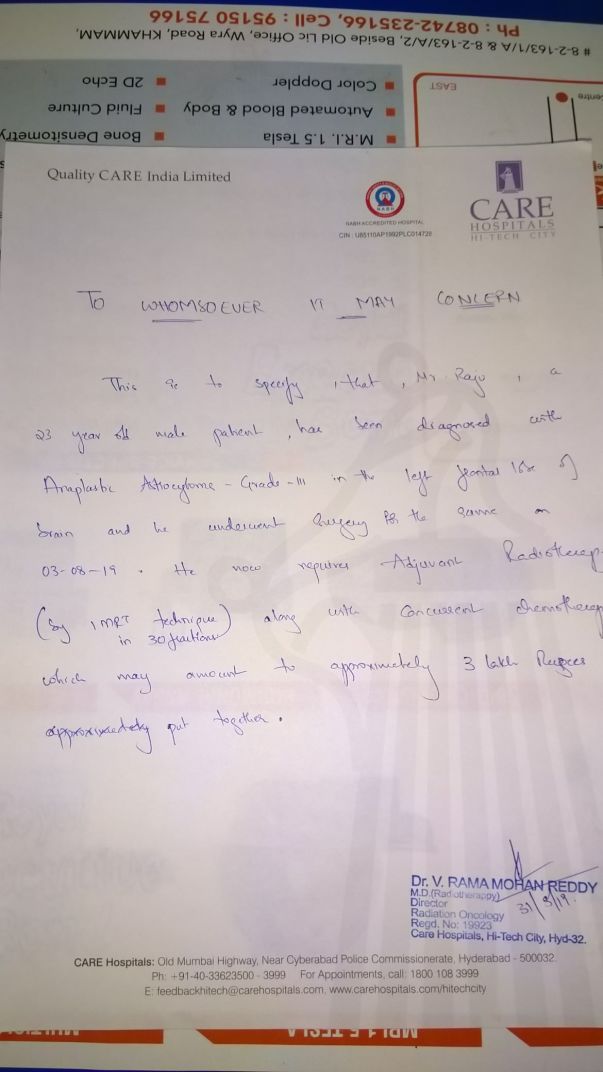 # 8-2-163/1/A & 8-2-163/A/2, Beside Old Lic Office, Wyra Road, KHAMMAM,
Ph : 08742-235166, Cell : 95150 75166
M.R.I. 1.5 Tesla
Bone Densitometry
Automated Blood & Body
Fluid Culture
Color Doppler
2D Echo
EAST
Quality CARE India Limited
NABH ACCREDITED HOSPITAL
CIN : U85110AP1992PLC014728
CARE
HOSPITALS
HI-TECH CITY
TO WHOMSOEVER IT MAY CONCERN
This is to specify , that , Mr Raju , a
23 year old male patient , has been diagnosed with
Anaplastic Astrocytoma - Grade - III in the left frontal lobe of
brain and he underwent surgery for the same on
03-08-19 . He now requires Adjuvant Radiotherap
(by IMRT technique in 30 fractions) along with Concurrent chemotherap
which may amount to approximately 3 lakh Rupees
approximately put together .
Dr. V. RAMA MOHAN REDDY
M.D.(Radiotherappy)
Director
31/8/19.
Radiation Oncology
Regd. No: 19923
Care Hospitals, Hi-Tech City, Hyd-32.
CARE Hospitals: Old Mumbai Highway, Near Cyberabad Police Commissionerate, Hyderabad - 500032.
Ph: +91-40-33623500 - 3999 For Appointments, call: 1800 108 3999
E: feedbackhitech@carehospitals.com, www.carehospitals.com/hitechcity
MRI 1.5 TESLA